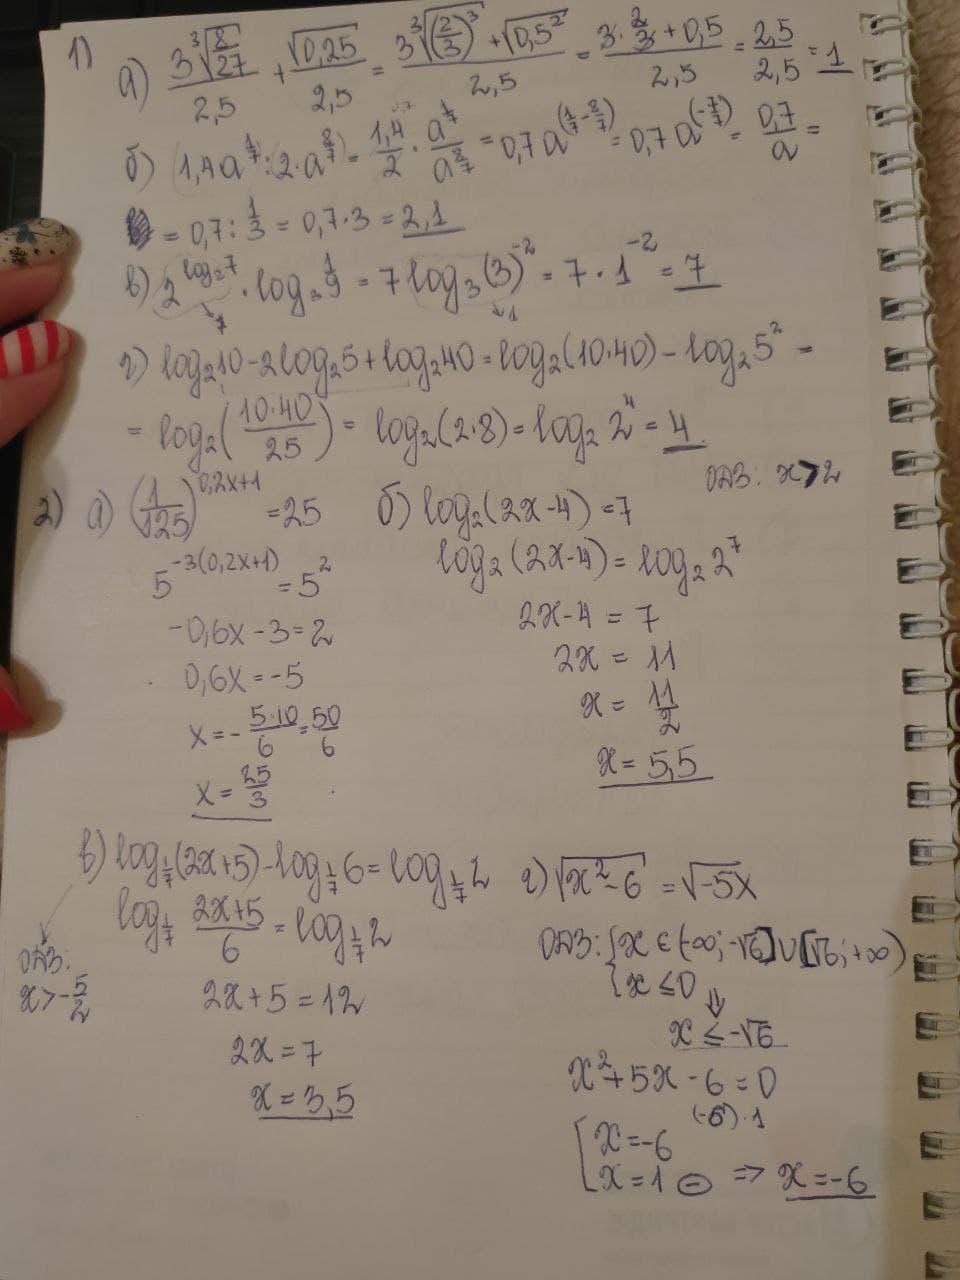 1)
а) 3∛(8/27)/2,5 + √0,25/2,5 = (3∛((2/3)^3) + √0,5^2)/2,5 = (3·2/3 + 0,5)/2,5 = 2,5/2,5 = 1
б) 1,4a^(1/7) : 2·a^(8/7) = 1,4/2 · a^(1/7)/a^(8/7) = 0,7a^(1/7 - 8/7) = 0,7a^(-7/7) = 0,7/a =
= 0,7 : 1/3 = 0,7·3 = 2,1
в) 2^(log₂7) · log₃ 1/9 = 7 log₃(3)^-2 = 7 · 1^-2 = 7
→ 7 → 1
г) log₂10 - 2log₂5 + log₂40 = log₂(10·40) - log₂5^2 =
= log₂(10·40/25) = log₂(2·8) = log₂ 2^4 = 4
2) а) (1/125)^(0,2x+1) = 25
5^(-3(0,2x+1)) = 5^2
-0,6x - 3 = 2
0,6x = -5
x = - 5·10/6 = 50/6
x = 25/3
б) log₂(2x-4) = 7
ОДЗ: x > 2
log₂(2x-4) = log₂ 2^7
2x - 4 = 7
2x = 11
x = 11/2
x = 5,5
в) log_(1/7)(2x+5) - log_(1/7) 6 = log_(1/7) 2
log_(1/7) (2x+5)/6 = log_(1/7) 2
ОДЗ:
x > -5/2
2x + 5 = 12
2x = 7
x = 3,5
г) √(x^2-6) = √(-5x)
ОДЗ: { x ∈ (-∞; -√6] ∪ [√6; +∞)
{ x ≤ 0
⇓
x ≤ -√6
x^2 + 5x - 6 = 0
(-6) · 1
[ x = -6
[ x = 1 ⊖ => x = -6